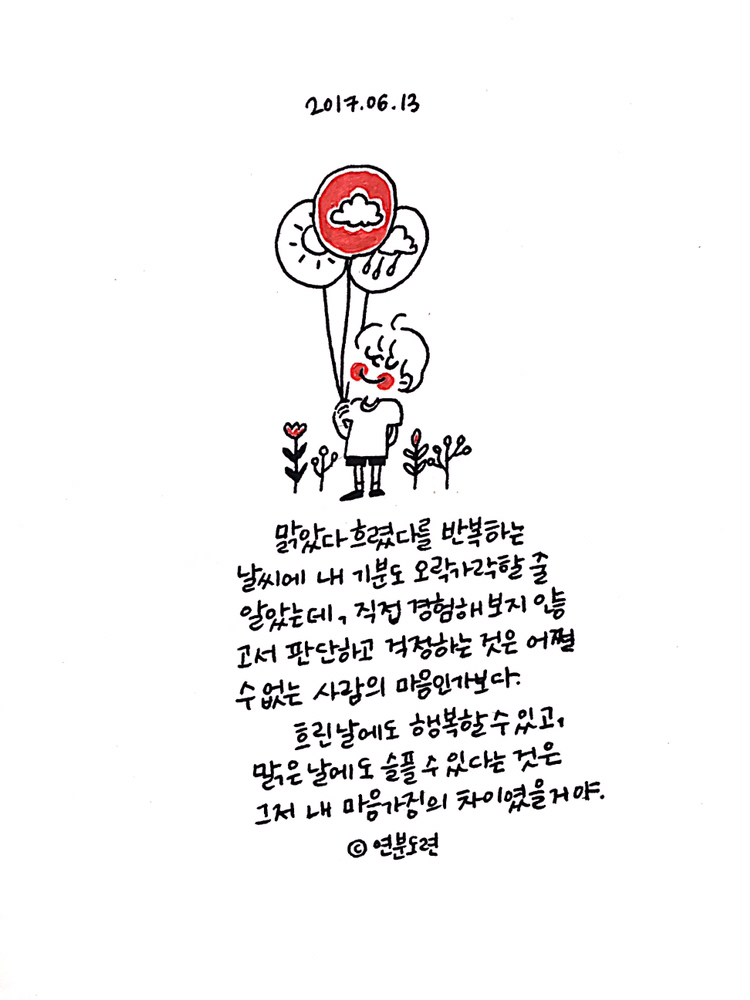 2017.06.13
맑았다 흐렸다를 반복하는
날씨에 내 기분도 오락가락할 줄
알았는데, 직접 경험해 보지 않
고서 판단하고 걱정하는 것은 어쩔
수 없는 사람의 마음인가보다.
흐린 날에도 행복할 수 있고,
맑은 날에도 슬플 수 있다는 것은
그저 내 마음가짐의 차이였을거야.
© 연분도련